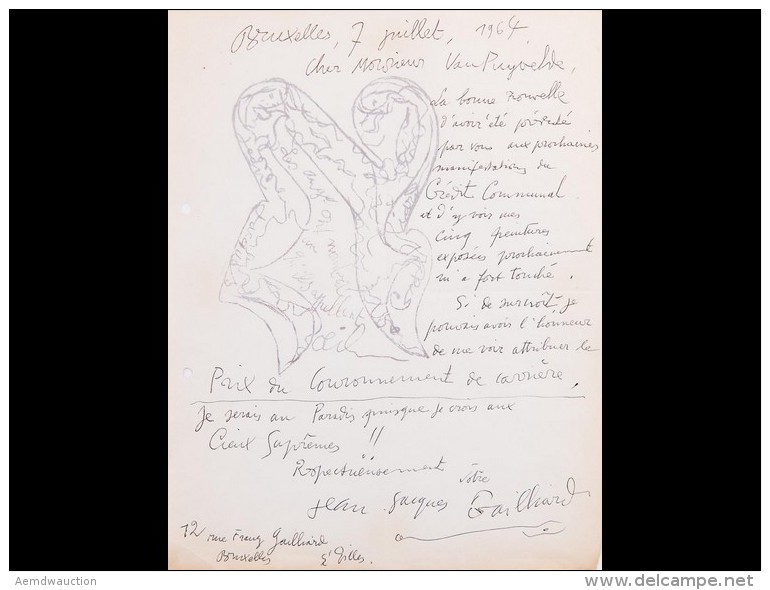 Bruxelles, 7 juillet, 1964
Cher Monsieur Van Puyvelde,
La bonne nouvelle
d'avoir été présenté
par vous aux prochaines
manifestations du
Crédit Communal
et d'y vois mes
cinq peintures
exposées prochainement
m'a fort touché.
Si de surcroît je
pouvais avoir l'honneur
de me voir attribuer le
Prix du Couronnement de carrière,
je serais au Paradis puisque je crois aux
Cieux Suprêmes !!
Respectueusement
vôtre
Jean Jacques Gailliard
12 rue Franz Gailliard
Bruxelles St Gilles.
Aemdwauction
delcampe.net